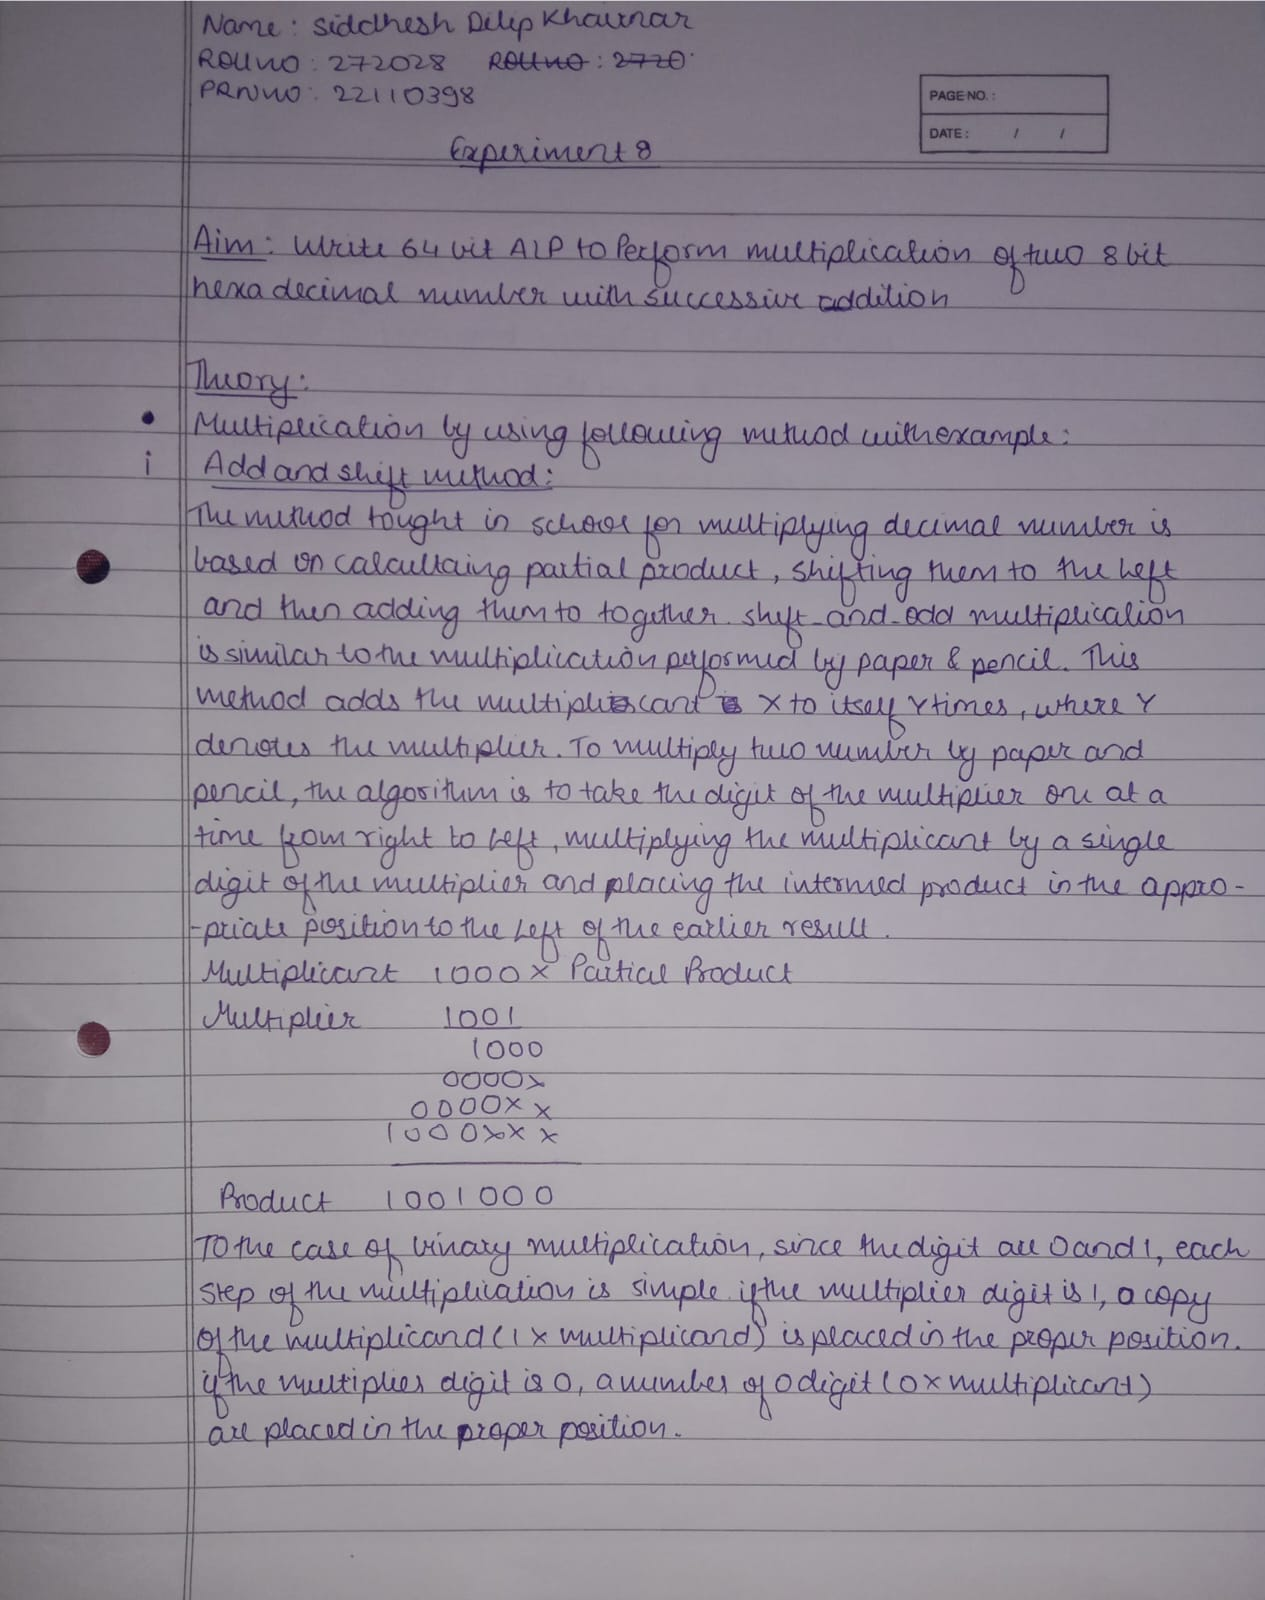 Name: Siddhesh Dilip Khairnar
Roll no: 272028 Roll no: 2720
PRN no: 22110398
PAGE NO.:
DATE: / /
Experiment 8
Aim: Write 64 bit ALP to Perform multiplication of two 8 bit
hexadecimal number with successive addition
Theory:
• Multiplication by using following method with example:
i Add and shift method:
The method tought in school for multiplying decimal number is
based on calcultaing partial product, shifting them to the left
and then adding them to together. shift-and-add multiplication
is similar to the multiplication performed by paper & pencil. This
method adds the multiplicant X to itself Y times, where Y
denotes the multiplier. To multiply two number by paper and
pencil, the algorithm is to take the digit of the multiplier one at a
time from right to left, multiplying the multiplicant by a single
digit of the multiplier and placing the intermed product in the appro-
-priate position to the left of the earlier result.
Multiplicant 1000 x Partial Product
Multiplier 1001
1000
0000x
0000x x
1000xx x
Product 1001000
To the case of binary multiplication, since the digit are 0 and 1, each
step of the multiplication is simple. if the multiplier digit is 1, a copy
of the multiplicand (1 x multiplicand) is placed in the proper position.
if the multiplier digit is 0, a number of 0 digit (0 x multiplicant)
are placed in the proper position.